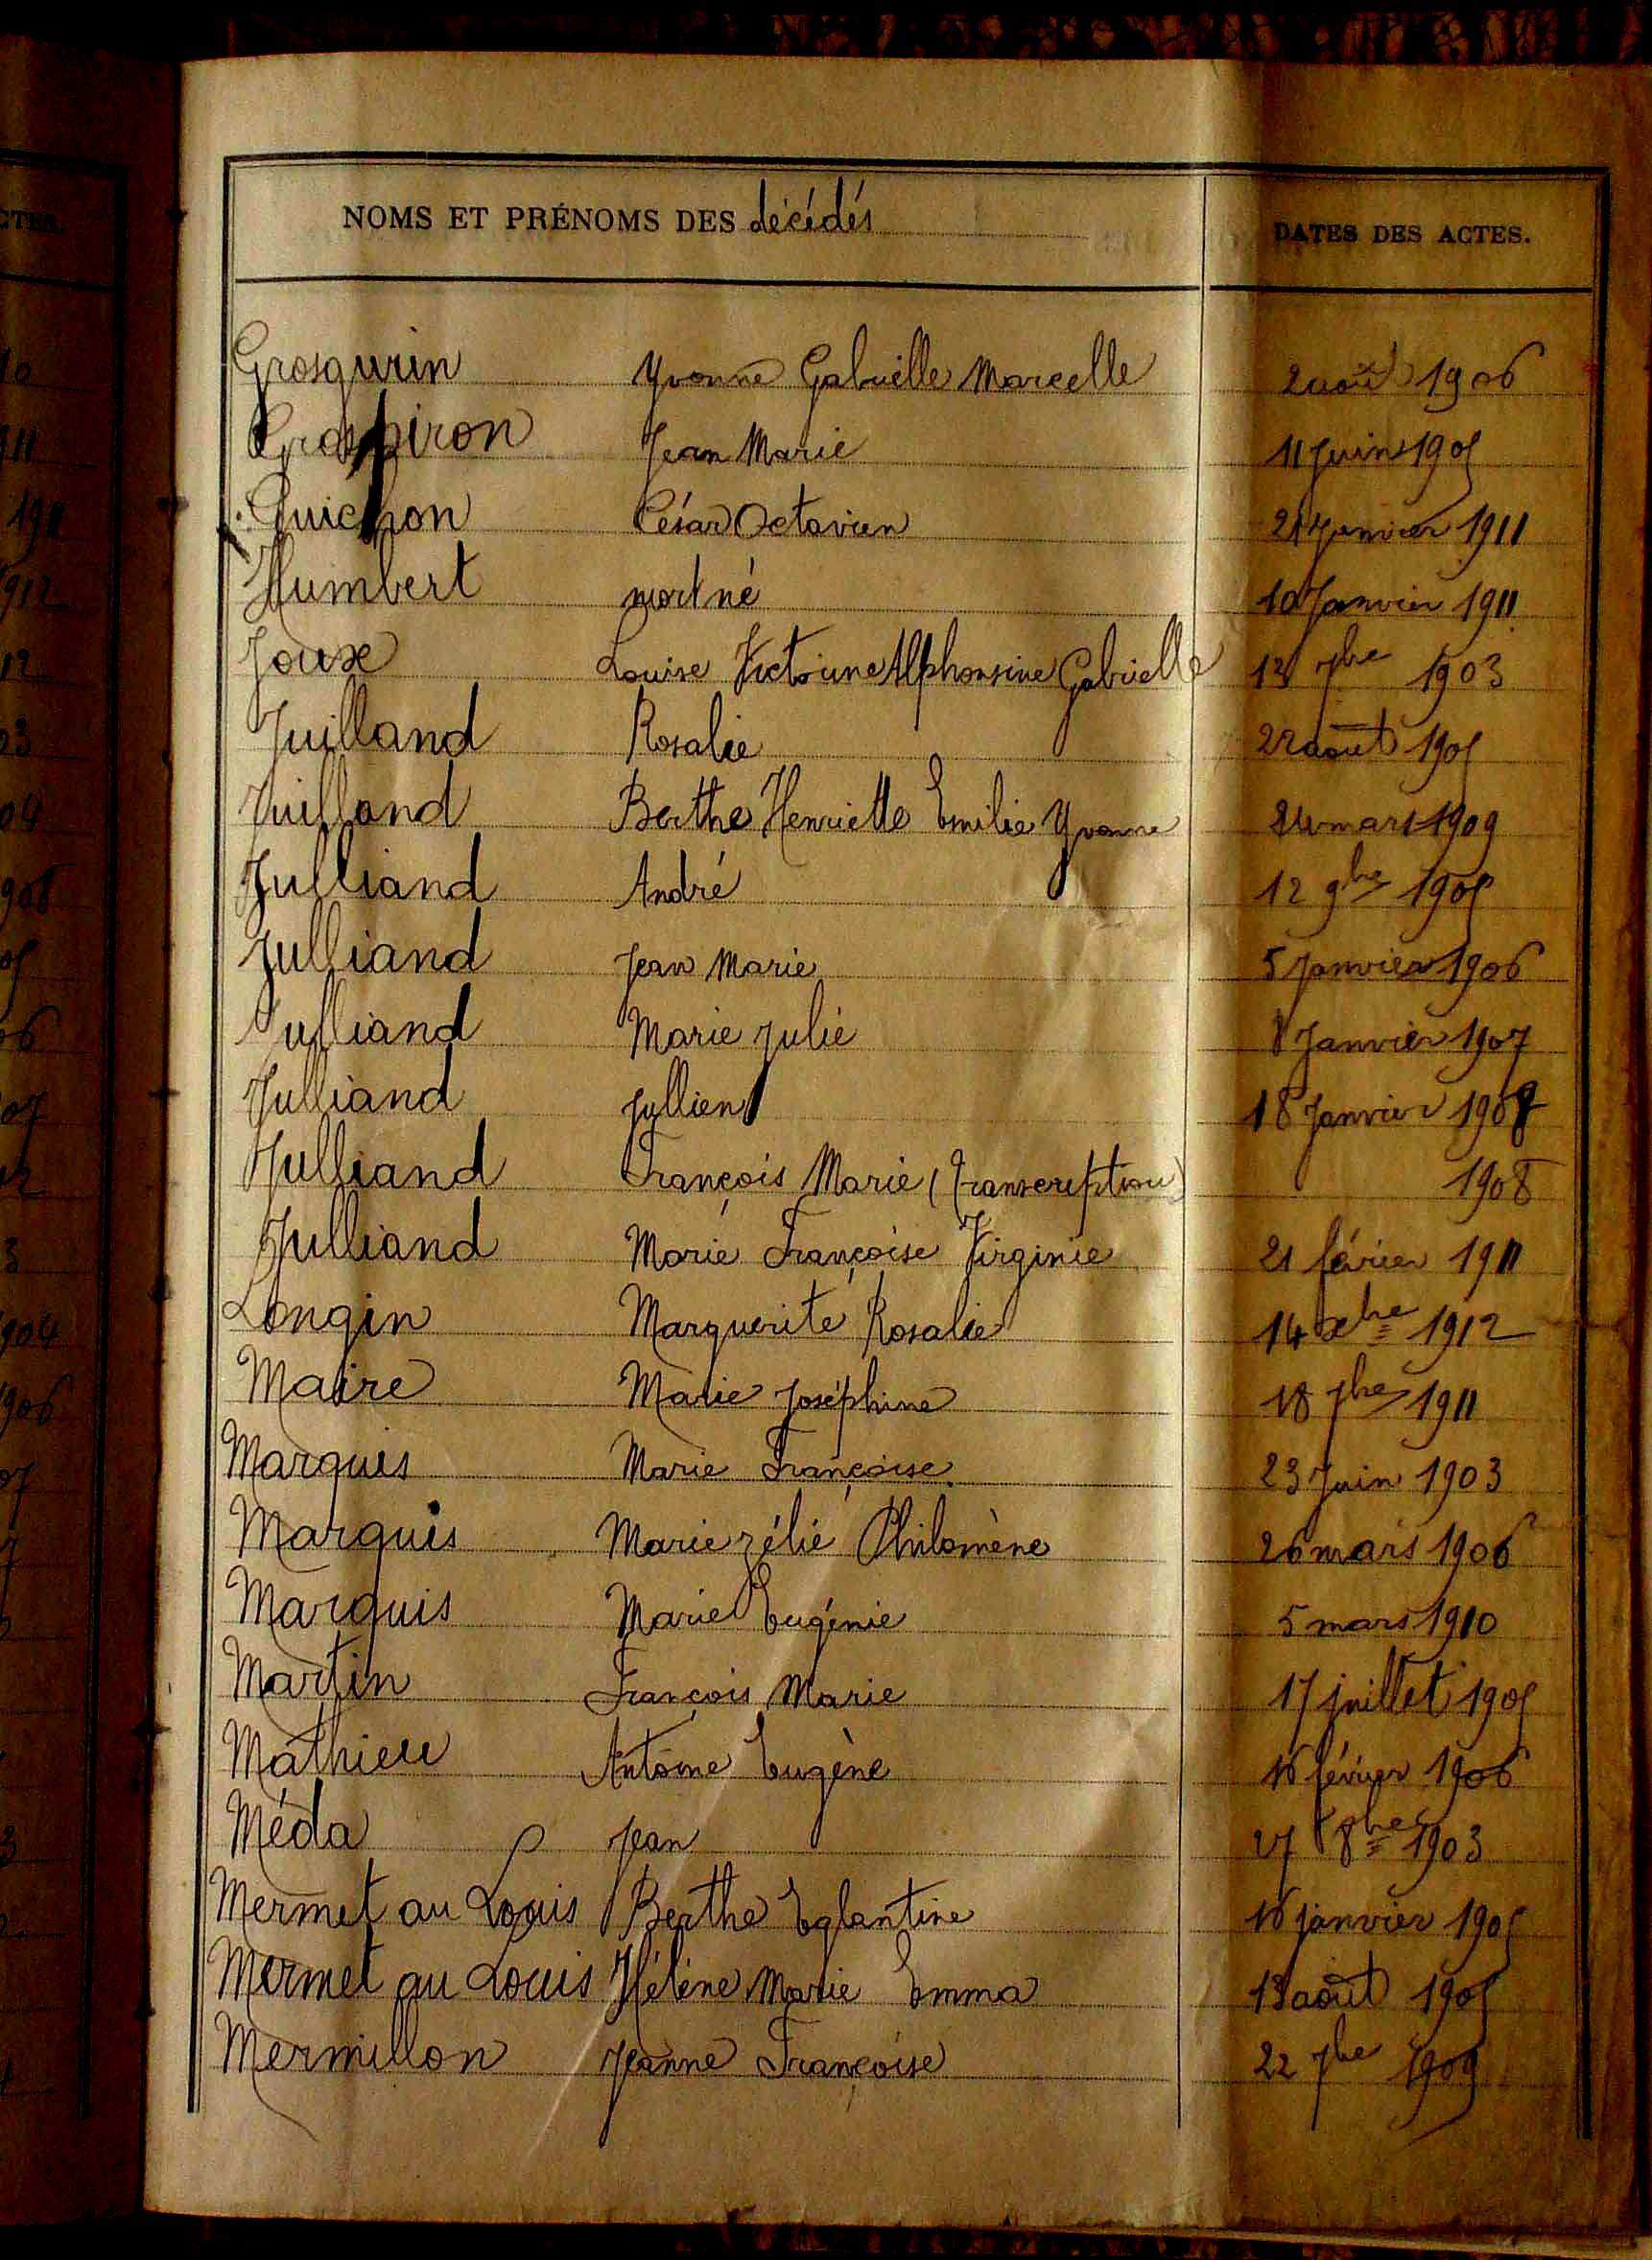 NOMS ET PRÉNOMS DES décédés DATES DES ACTES.
Grosgurin Yvonne Gabrielle Marcelle 2 août 1906
Grospiron Jean Marie 11 Juin 1905
Guichon César Octavien 21 Janvier 1911
Humbert mort né 10 Janvier 1911
Joux Louise Victorine Alphonsine Gabrielle 13 7bre 1903
Juilland Rosalie 22 août 1905
Juilland Berthe Henriette Emilie Yvonne 24 mars 1909
Julliand André 12 9bre 1905
Julliand Jean Marie 5 Janvier 1906
Julliand Marie Julie 8 Janvier 1907
Julliand Jullien 18 Janvier
Julliand François Marie (Transcription) 1908
Julliand Marie Françoise Virginie 21 février 1911
Longin Marguerite Rosalie 14 xbre 1912
Maire Marie Joséphine 18 7bre 1911
Marquis Marie Françoise 23 Juin 1903
Marquis Marie Zélie Philomène 26 mars 1906
Marquis Marie Eugénie 5 mars 1910
Martin François Marie 17 juillet 1905
Mathieu Antoine Eugène 16 février 1906
Méda Jean 27 8bre 1903
Mermet au Louis Berthe Eglantine 16 janvier 1905
Mermet au Louis Hélène Marie Emma 13 août 1905
Mermillon Jeanne Françoise 22 7bre 1909